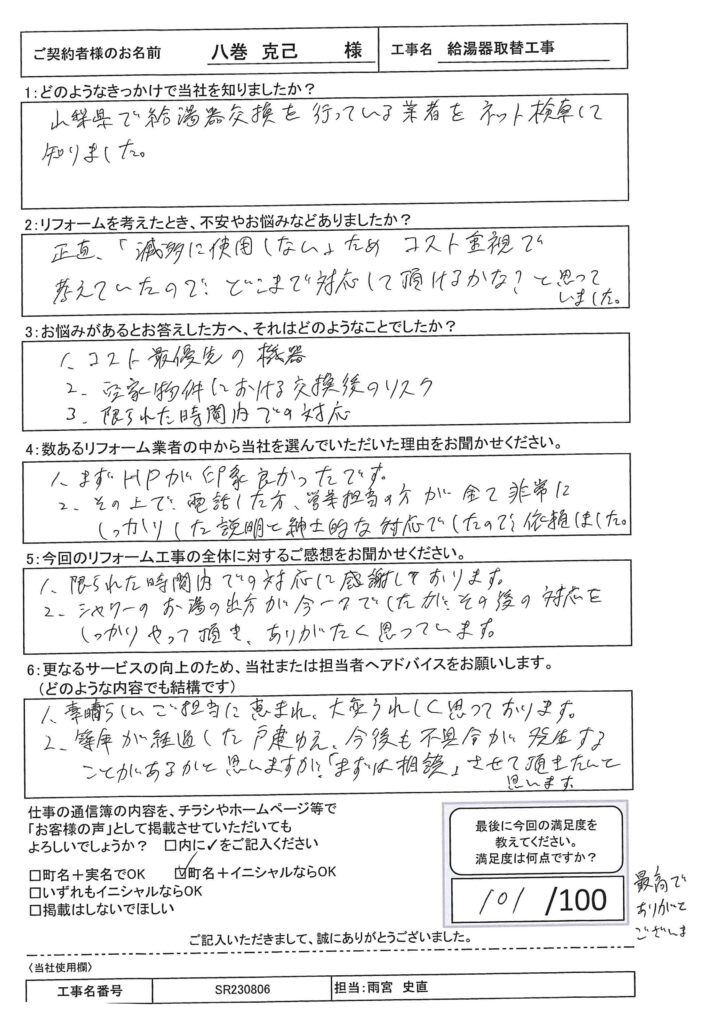 ご契約者様のお名前 八巻 克己 様 工事名 給湯器取替工事
1:どのようなきっかけで当社を知りましたか？
山梨県で給湯器交換を行っている業者をネット検索して
知りました。
2:リフォームを考えたとき、不安やお悩みなどありましたか？
正直、「滅多に使用しない」ため コスト重視で
考えていたので、どこまで対応して頂けるかな？と思って
いました。
3:お悩みがあるとお答えした方へ、それはどのようなことでしたか？
1、コスト最優先の機器
2、空家物件における交換後のリスク
3、限られた時間内での対応
4:数あるリフォーム業者の中から当社を選んでいただいた理由をお聞かせください。
1、まずHPが印象良かったです。
2、その上で、電話した方、営業担当の方が全て非常に
しっかりした説明と紳士的な対応でしたので依頼しました。
5:今回のリフォーム工事の全体に対するご感想をお聞かせください。
1、限られた時間内での対応に感謝しております。
2、シャワーのお湯の出方が今一つでしたが、その後の対応を
しっかりやって頂き、ありがたく思っています。
6:更なるサービスの向上のため、当社または担当者へアドバイスをお願いします。
（どのような内容でも結構です）
1、素晴らしいご担当に恵まれ、大変うれしく思っております。
2、築年が経過した戸建ゆえ、今後も不具合が発生する
ことがあるかと思いますが、「まずは相談」させて頂きたいと
思います。
仕事の通信簿の内容を、チラシやホームページ等で
「お客様の声」として掲載させていただいても
よろしいでしょうか？ □内に✓をご記入ください
□町名＋実名でOK ☑町名＋イニシャルならOK
□いずれもイニシャルならOK
□掲載はしないでほしい
最後に今回の満足度を
教えてください。
満足度は何点ですか？
101 /100
最高で
ありがとう
ございま
ご記入いただきまして、誠にありがとうございました。
〈当社使用欄〉
工事名番号 SR230806 担当:雨宮 史直